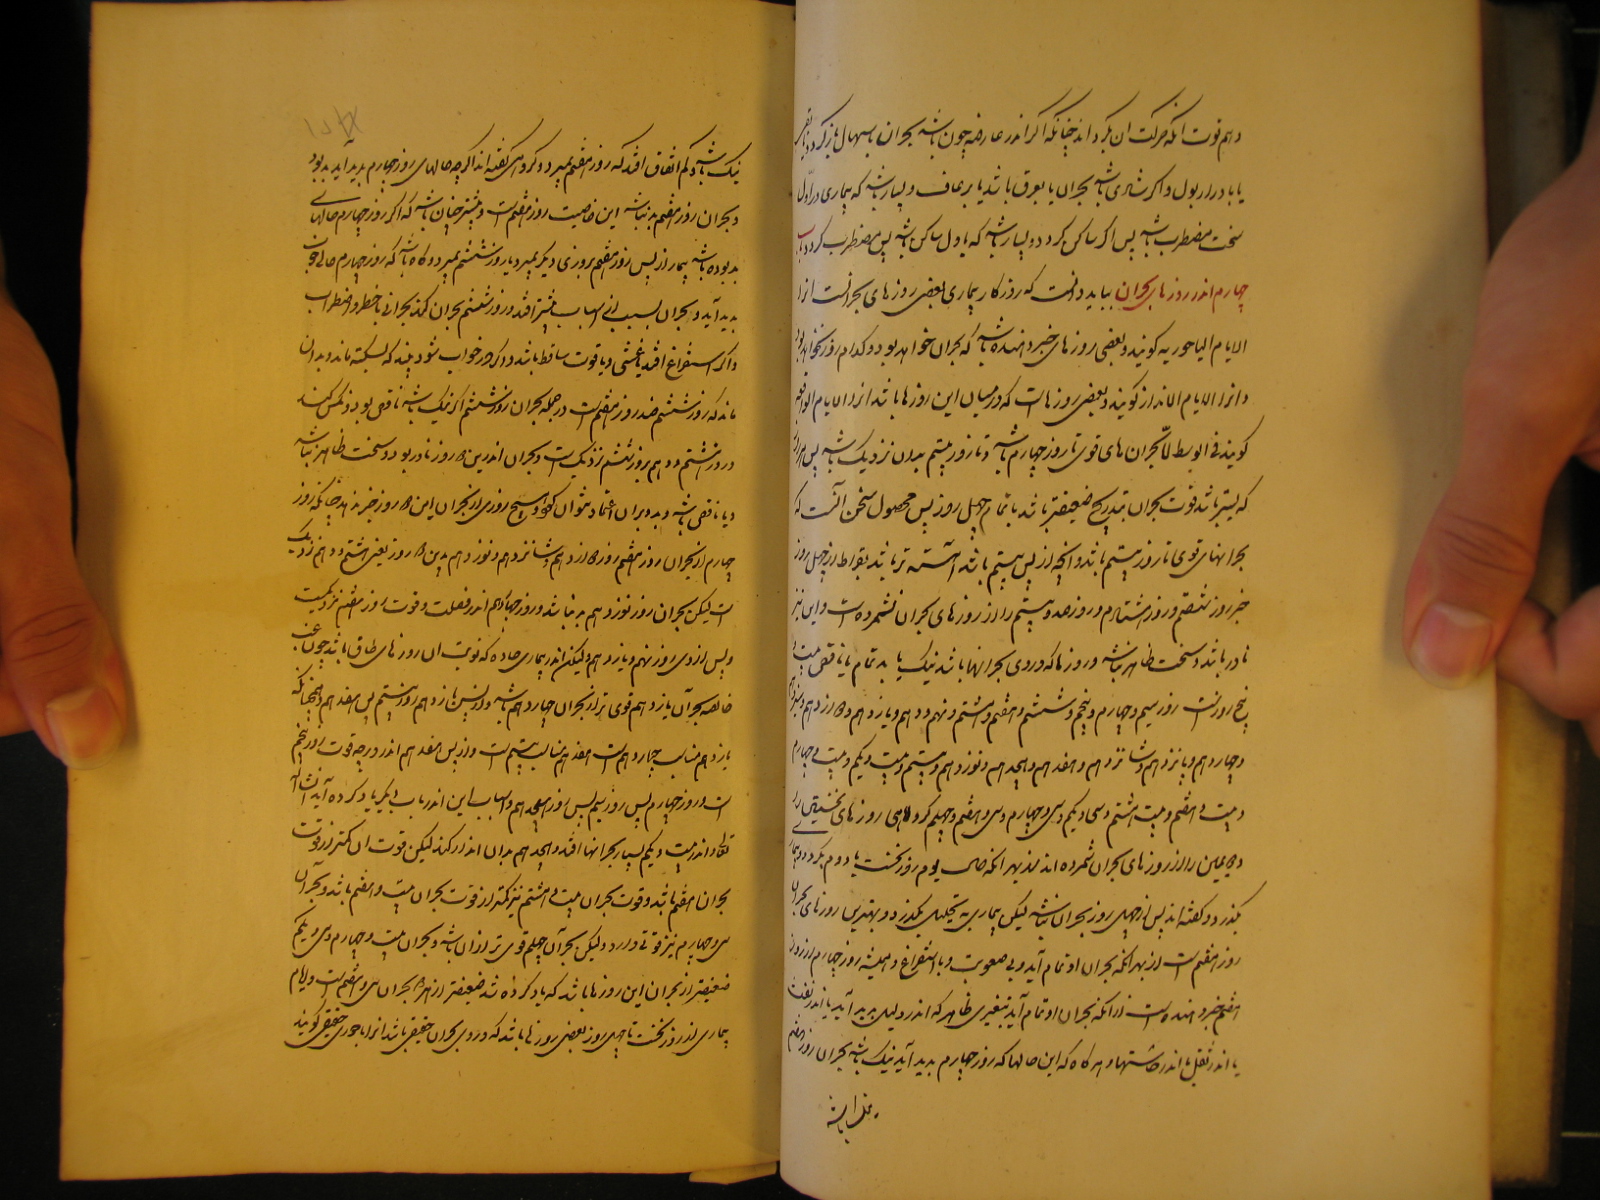 دهم قوت آنکه حرکت آن بکرداند چنانکه اکر اندر عارضه چون باشد بحران باسهال بازکردد
یا بادرار بول و اکر شاری باشد بحران یا بعرق باشد یا برعاف و بسیار باشد که بیماری در اول
سخت مضطرب باشد پس اکر ساکن کردد و بسیار باشد که باول ساکن باشد پس مضطرب کردد باب
چهارم اندر روزهای بحران بباید دانست که روزکار بیماری بعضی روزهای بحرانست انرا
الایام الباحوریه کویند و بعضی روزهای خبر دهنده باشد که بحران خواهد بود و کدام روز خواهد بود
و انرا الایام الانذار کویند و بعضی روزهاست که در میان این روزها باشد انرا الایام الواقعه
کویند فی الوسط بحران های قوی تا روز چهارم باشد و تا روز بیستم بدان نزدیک باشد پس
که بیشتر باشد قوت بحران بتدریج ضعیفتر باشد تا تمام چهل روز پس محصول سخن آنست که
بحرانهای قوی تا روز بیستم باشد و آنچه از پس بیستم باشد آهسته تر باشد بقراط از چهل روز
جز روز شصتم و روز هشتادم و روز صد و بیستم را از روزهای بحران نشمرده است و این نیز
نادر باشد و سخت ظاهر نباشد و روزها که در وی بحرانها باشد نیک یا بد تمام یا ناقص بیست و
پنج روزست روز سیم و چهارم و پنجم و ششم و هفتم و هشتم و نهم و دهم و یازدهم و دوازدهم و سیزدهم
و چهاردهم و پانزدهم و شانزدهم و هفدهم و هجدهم و نوزدهم و بیستم و بیست و یکم و بیست و چهارم
و بیست و هفتم و بیست و هشتم و سی و یکم و سی و چهارم و سی و هفتم و چهلم کروهی روزهای نخستین را
و دومین را از روزهای بحران شمرده اند از بهر آنکه حمی یوم روز نخست یا دوم بکردد و
بکذرد و کفته اند پس از چهل روز بحران نباشد لیکن بیماری به تحلیل بکذرد و بهترین روزهای بحران
روز هفتم است از بهر آنکه بحران او تمام آید و بی صعوبت و با استفراغ و همیشه روز چهارم از روز
هفتم خبر دهنده است از آنکه بحران او تمام آید بتغیری ظاهر که اندر دلیل پدید آید یا اندر نفث
یا اندر ثفل یا اندر حاستها و هرکاه که این حالها که روز چهارم پدید آید نیک باشد بحران روز هفتم
نیک باشد
نیک باشد و کم اتفاق افتد که روز هفتم بمیرد و کروهی کفته اند اکرچه حالهای روز چهارم پدید آید بد بود
و بحران روز هفتم بد نباشد این خاصیت روز هفتمست و بیشتر چنان باشد که اکر روز چهارم حالهای
بد بوده باشد بیمار از پس روز هفتم بروزی دیکر بمیرد یا روز ششم بمیرد و کاه باشد که روز چهارم حالی خوب
پدید آید و بحران بسبب از اسباب بیشتر افتد و روز ششم بحران کند بحرانی با خطر و اضطراب
و اکر استفراغ افتد با غشی و یا قوت ساقط باشد و اکر در خواب شود بیند که بسکته ماند و بدان
ماند که روز ششم ضد روز هفتم است در جمله بحران روز ششم اکر نیک باشد ناقص بود و نکس کند
و روز هشتم و دهم بروز ششم نزدیک است و بحران اندرین دو روز نادر بود و سخت ظاهر نباشد
و یا ناقص باشد و بد و بران اعتماد نتوان کرد و هیچ روزی از بحران این دو روز خبر ندهد چنانکه روز
چهارم از بحران روز هفتم روز دوازدهم و شانزدهم و نوزدهم بدین دو روز یعنی هشتم و دهم نزدیک
است لیکن بحران روز نوزدهم بد نباشد و روز چهاردهم اندر فعلت و قوت روز هفتم نزدیکست
و پس از وی روز نهم و یازدهم ولیکن اندر بیماری حاده که نوبت آن روزهای طاق باشد چون غب
خالصه بحران یازدهم قوی تر از بحران چهاردهم باشد و از پس یازدهم روز بیستم پس هفدهم و همچنانکه
یازدهم مناسب چهاردهم است هفدهم مناسب بیستم است و از پس هفدهم اندر درجه قوت روز پنجم
است و روز چهارم پس روز سیم پس روز هجدهم و اسباب این اندر باب دیکر یاد کرده آید ان شاء الله
تعالی و اندر بیست و یکم بسیار بحرانها افتد و هجدهم بدان انذار کند لیکن قوت آن کمتر از قوت
بحران هفتم باشد و قوت بحران بیست و هشتم نیز کمتر از قوت بحران بیست و هفتم باشد و بحران
سی و چهارم نیز قوتی دارد ولیکن بحران چهلم قوی تر از آن باشد و بحران بیست و چهارم و سی و یکم
ضعیفتر از بحران این روزها باشد که یاد کرده شد ضعیفتر از همه بحران سی و هفتم است و ایام
بیماری از روز نخست تا چهل روز بعضی روزها باشد که در وی بحران حقیقی باشد انرا باحوری حقیقی کویند